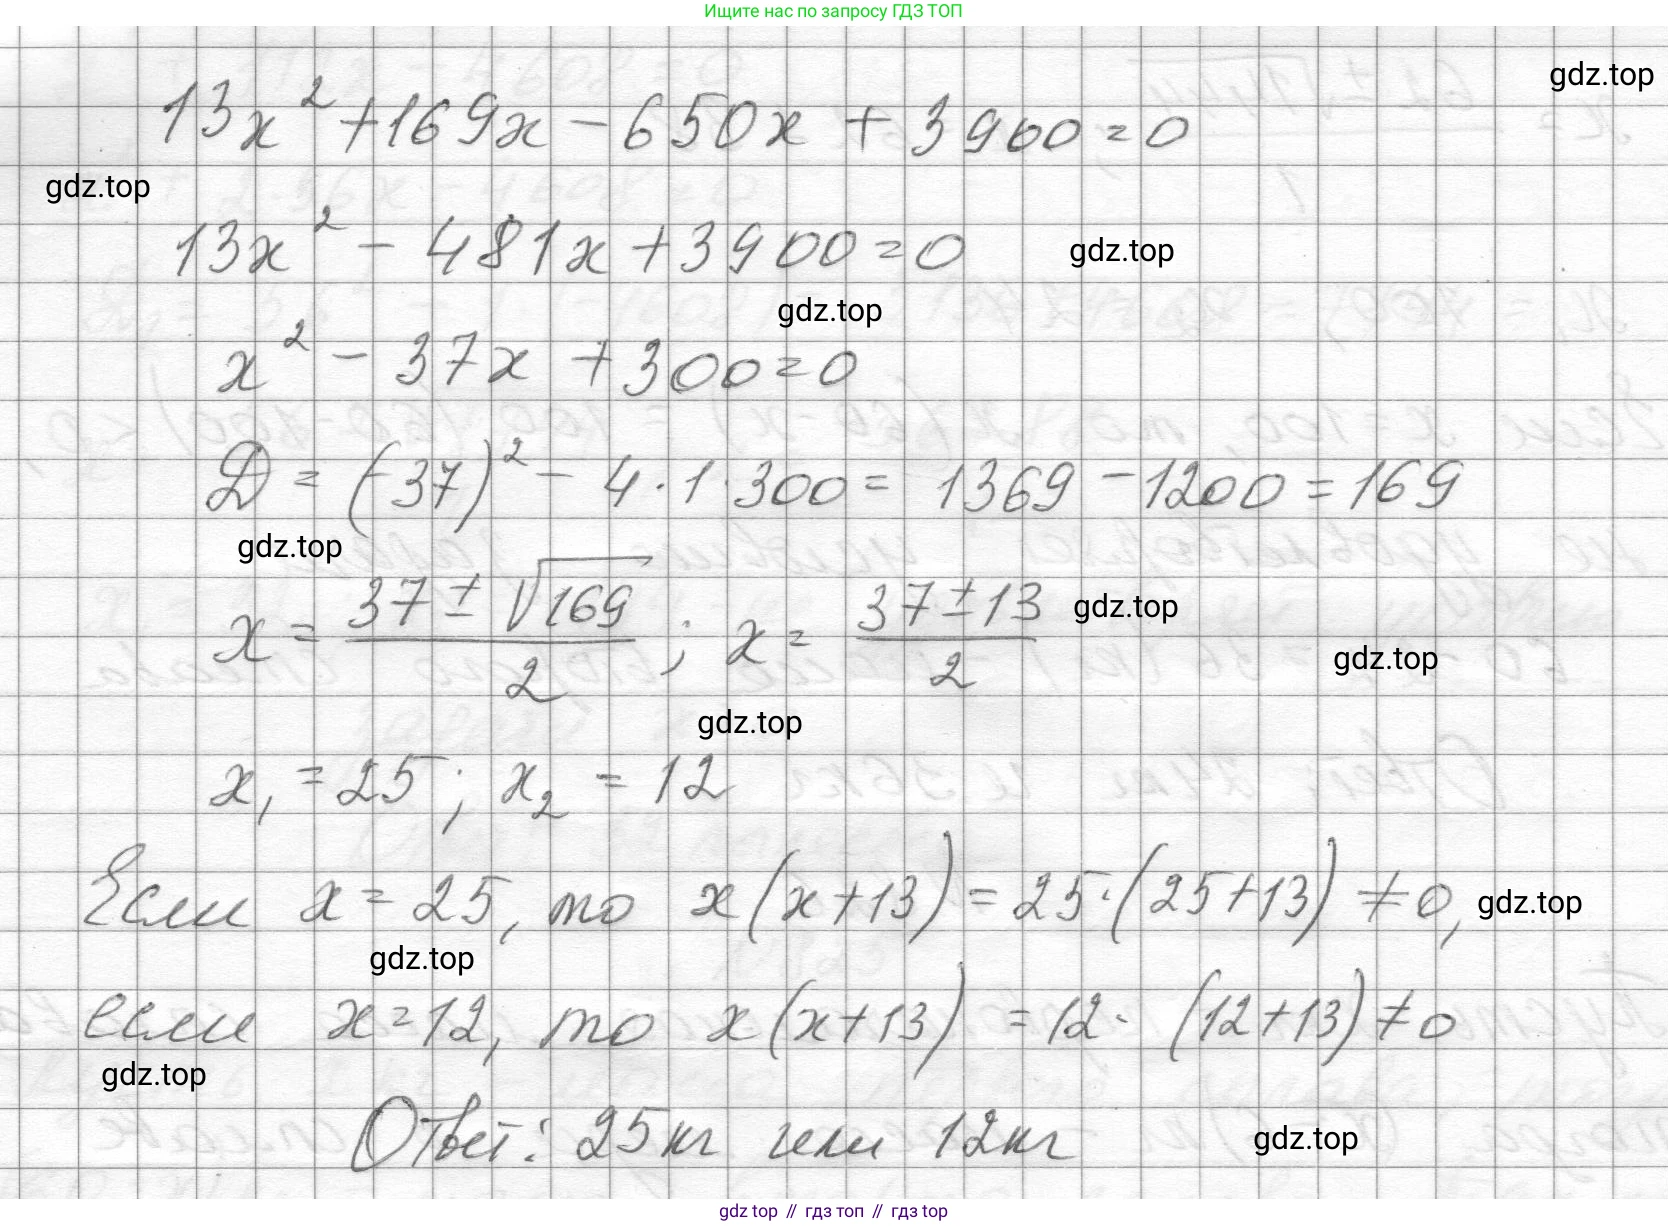 Ищите нас по запросу ГДЗ ТОП
gdz.top
13x² + 169x − 650x + 3900 = 0
gdz.top
13x² − 481x + 3900 = 0
gdz.top
gdz.top
x² − 37x + 300 = 0
D = (−37)² − 4·1·300 = 1369 − 1200 = 169
gdz.top
x = (37 ± √169)/2 ; x = (37 ± 13)/2
gdz.top
gdz.top
gdz.top
x₁ = 25; x₂ = 12
Если x = 25, то x(x+13) = 25·(25+13) ≠ 0,
gdz.top
gdz.top
если x = 12, то x(x+13) = 12·(12+13) ≠ 0
gdz.top
Ответ: 25 кг или 12 кг
gdz.top
gdz top // гдз топ // гдз top